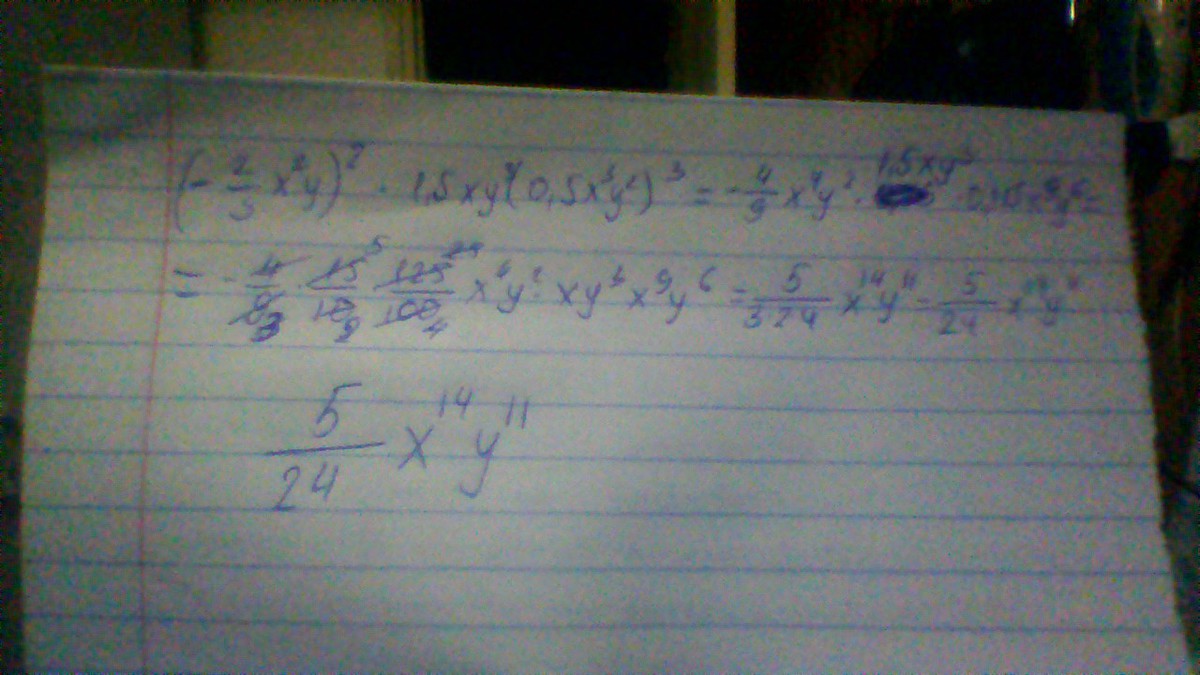 (-2/3 x²y)² · 1,5xy⁴(0,5x³y²)³ = -4/9 x⁴y² · 1,5xy³ · 0,125x⁹y⁶ =
= - 4/9 3 15/10 5 2 125/100 4 x⁴y² · xy³x⁹y⁶ = 5/324 x¹⁴y¹¹ = 5/24 x¹⁴y¹¹
5/24 x¹⁴y¹¹